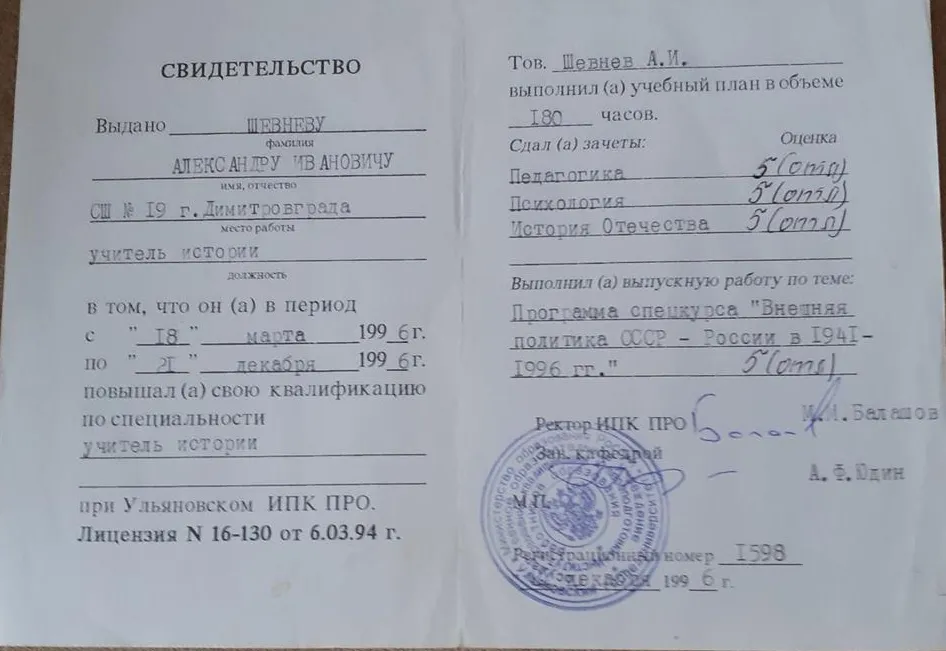 СВИДЕТЕЛЬСТВО
Выдано ШЕВНЕВУ
фамилия
АЛЕКСАНДРУ ИВАНОВИЧУ
имя, отчество
СШ № I9 г.Димитровграда
место работы
учитель истории
должность
в том, что он (а) в период
с "I8" марта 1996г.
по "2I" декабря 1996г.
повышал (а) свою квалификацию
по специальности
учитель истории
при Ульяновском ИПК ПРО.
Лицензия N 16-130 от 6.03.94 г.
Тов. Шевнев А.И.
выполнил (а) учебный план в объеме
I80 часов.
Сдал (а) зачеты: Оценка
Педагогика 5(отл)
Психология 5(отл)
История Отечества 5(отл)
Выполнил (а) выпускную работу по теме:
Программа спецкурса "Внешняя
политика СССР - России в I94I-
I996 гг." 5(отл)
Ректор ИПК ПРО М.И.Балашов
Зав. кафедрой
А.Ф.Юдин
М.П.
Регистрационный номер I598
декабря 1996 г.